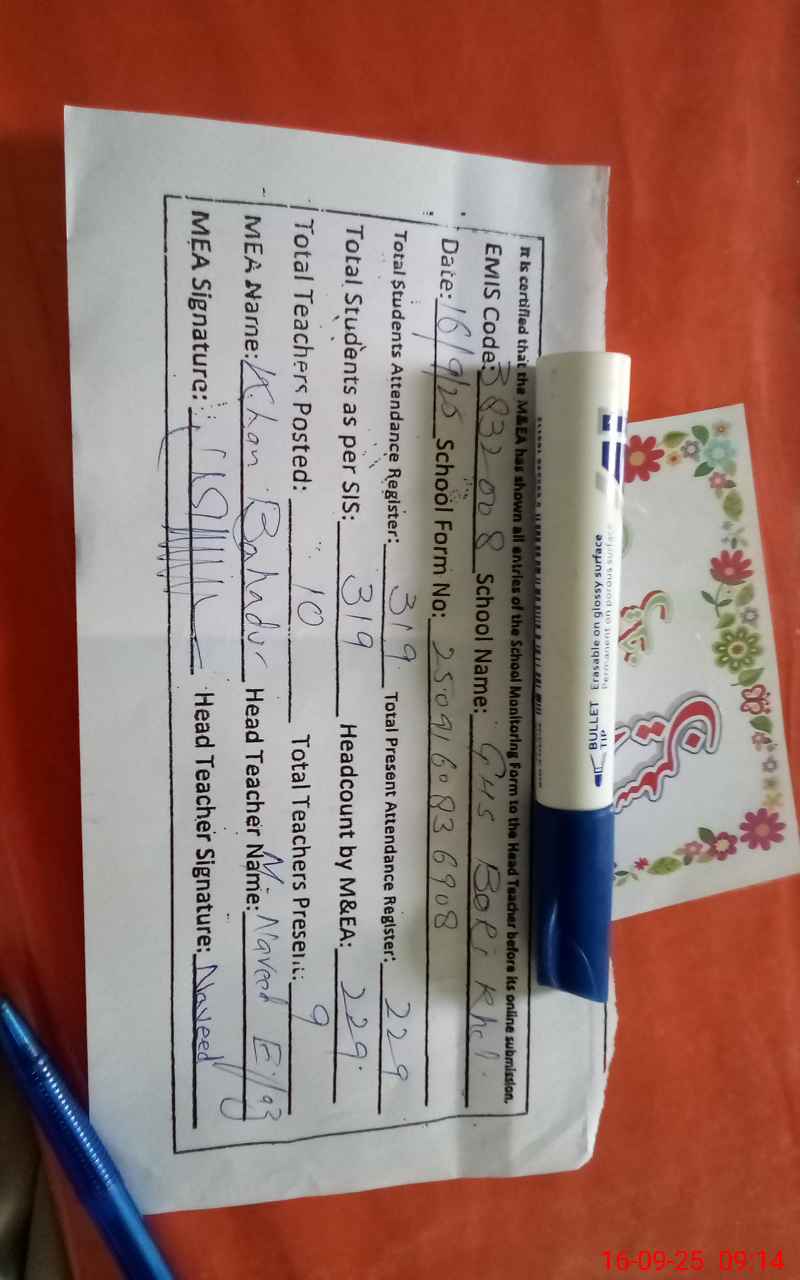 It is certified that the M&EA has shown all entries of the School Monitoring Form to the Head Teacher before its online submission.
EMIS Code: 3832008 School Name: GHS Bori Khel
Date: 16/9/25 School Form No: 2509160836908
Total Students Attendance Register: 319 Total Present Attendance Register: 229
Total Students as per SIS: 319 Headcount by M&EA: 229
Total Teachers Posted: 10 Total Teachers Present: 9
MEA Name: Khan Bahadur Head Teacher Name: M. Naveed
MEA Signature: Head Teacher Signature: Naveed
Erasable on glossy surface
BULLET TIP
16-09-25 09:14